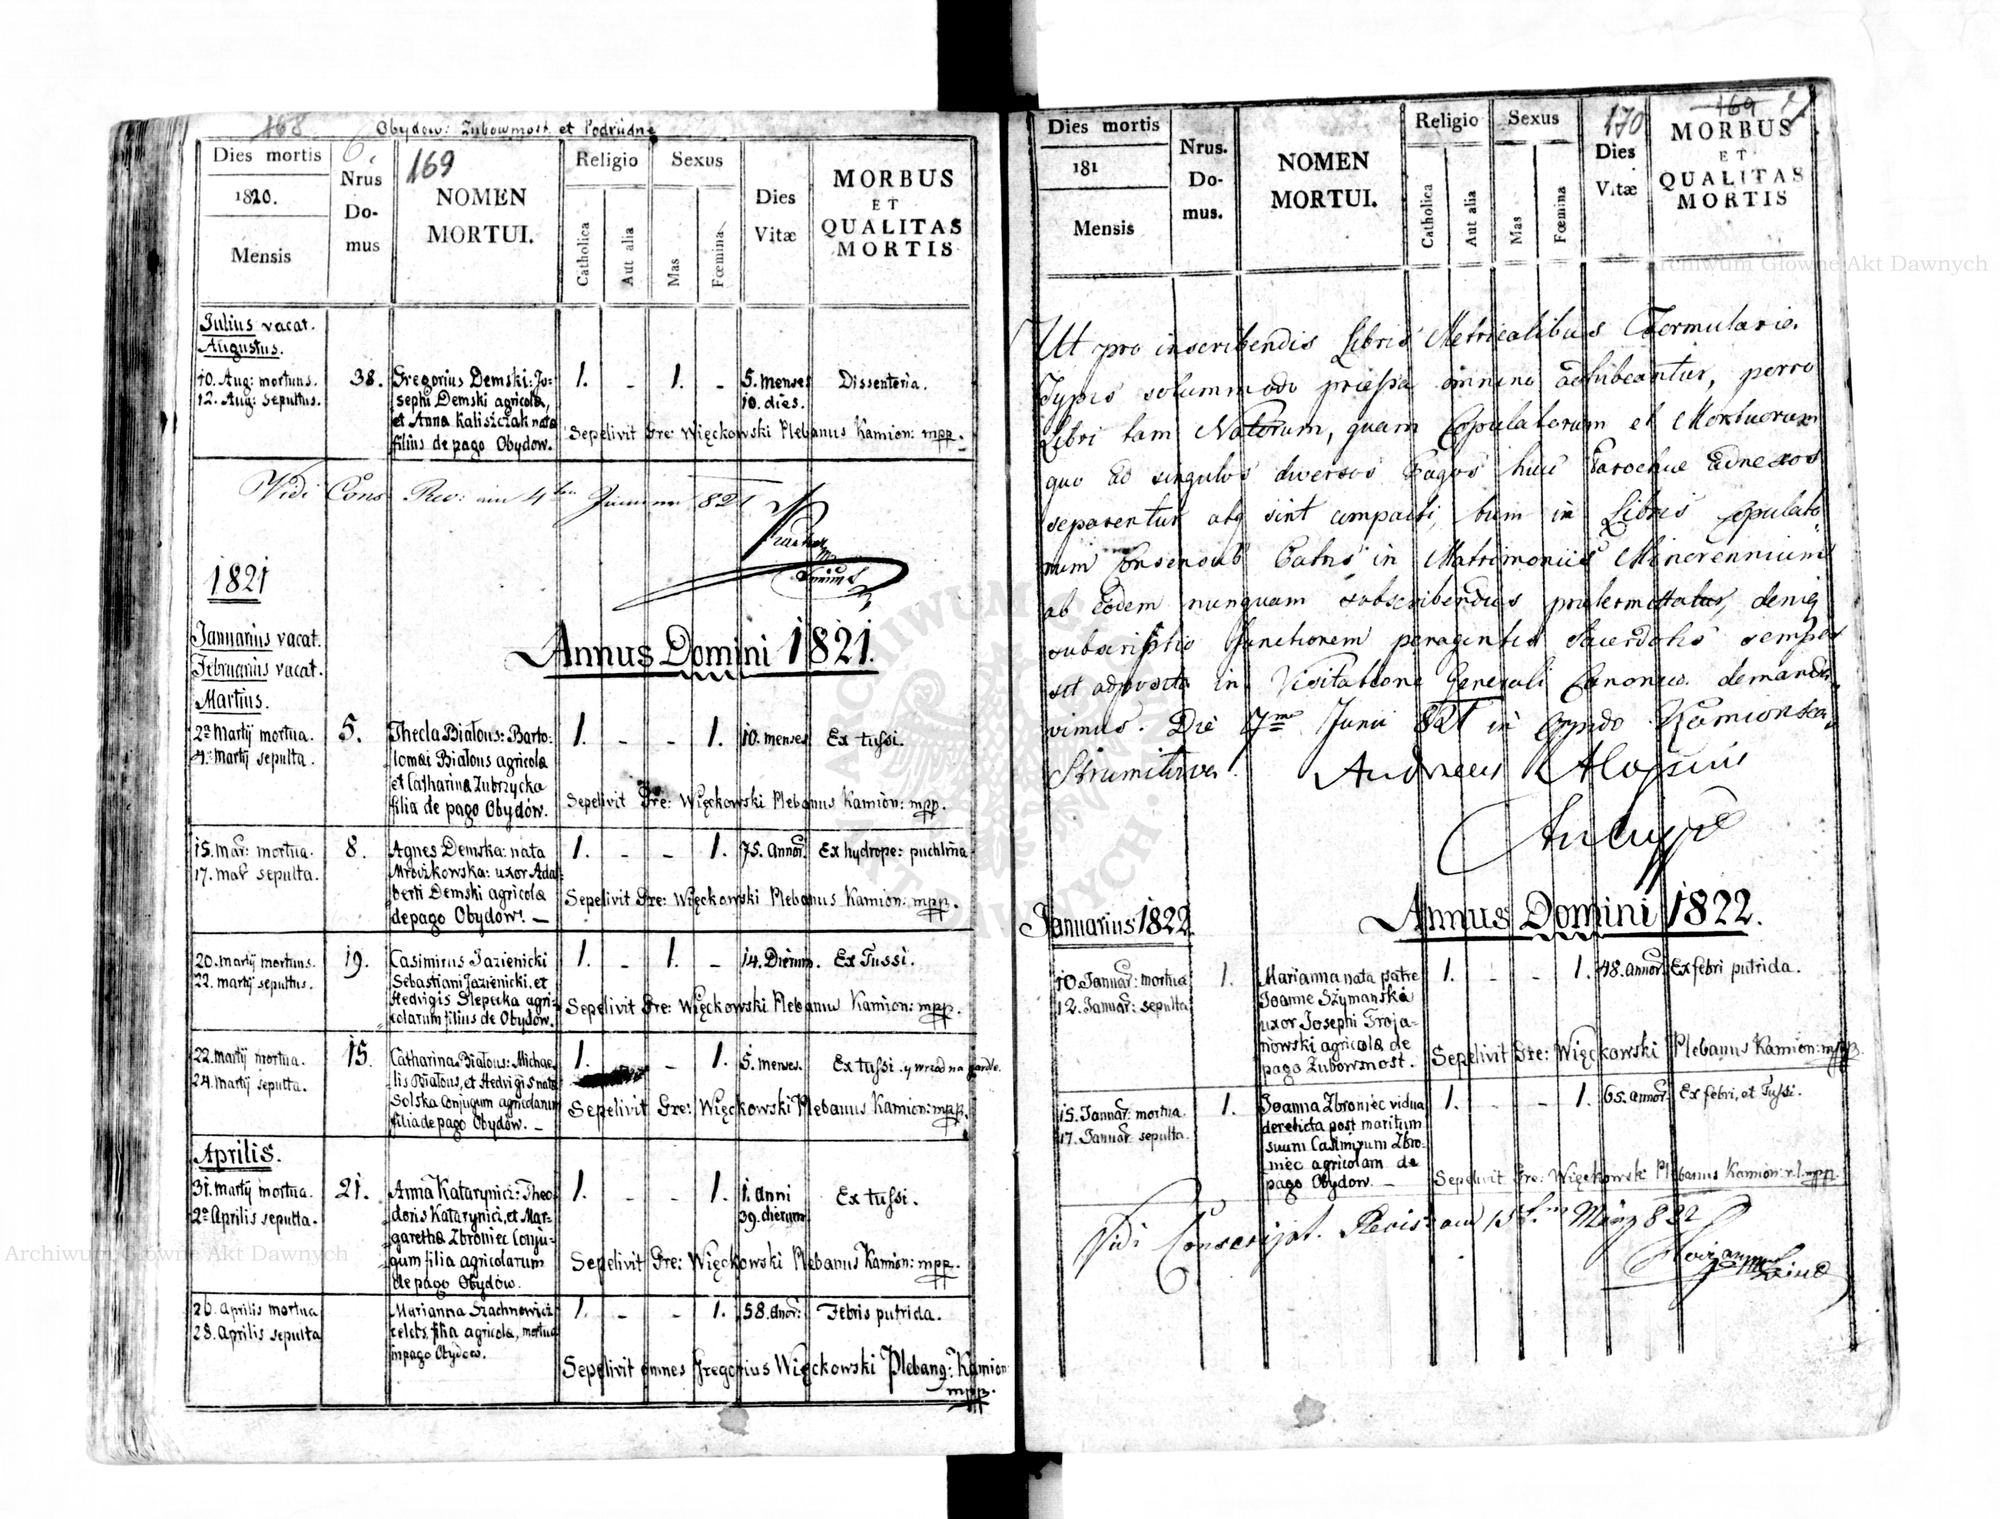 168
Obydow: Zubowmost et Podrudne
169
Dies mortis
1820.
Mensis
Nrus
Do-
mus
NOMEN
MORTUI.
Religio
Catholica
Aut alia
Sexus
Mas
Fœmina
Dies
Vitæ
MORBUS
ET
QUALITAS
MORTIS
Julius vacat.
Augustus.
10. Aug: mortuus.
12. Aug: sepultus.
38.
Gregorius Demski: Jo-
sephi Demski agricolæ,
et Anna Kaliszczak nata
filius de pago Obydow.
1. - 1. -
5. menses
10. dies.
Dissenteria.
Sepelivit Gre: Więckowski Plebanus Kamion: mpp.
Vidi Cons Rev: am 4ten Juni 1821
1821
Annus Domini 1821.
Januarius vacat.
Februarius vacat.
Martius.
2a Martij mortua.
4. Martij sepulta.
5.
Thecla Białous: Barto-
lomæi Białous agricolæ
et Catharina Zubrzycka
filia de pago Obydów.
1. - - 1.
10. menses
Ex tussi.
Sepelivit Gre: Więckowski Plebanus Kamion: mpp.
15. Mar: mortua.
17. Mar sepulta.
8.
Agnes Demska: nata
Mrovikowska: uxor Adal-
berti Demski agricolæ
de pago Obydow. —
1. - - 1.
75. Annor.
Ex hydrope: puchlina
Sepelivit Gre: Więckowski Plebanus Kamion: mpp.
20. Martij mortuus.
22. Martij sepultus.
19.
Casimirus Jazienicki
Sebastiani Jazienicki, et
Hedvigis Slepecka agri-
colarum filius de Obydow.
1. - 1. -
14. Dierum.
Ex Tussi.
Sepelivit Gre: Więckowski Plebanus Kamion: mpp.
22. Martij mortua.
24. Martij sepulta.
15.
Catharina Białous: Michae-
lis Białous, et Hedvigis nata
Solska Conjugum agricolarum
filia de pago Obydow. —
1. - 1.
5. menses.
Ex tussi y wrzod na gardle.
Sepelivit Gre: Więckowski Plebanus Kamion: mpp.
Aprilis.
31. Martij mortua.
2a Aprilis sepulta.
21.
Anna Katarynici: Theo-
doris Katarynici, et Mar-
garetha Zbroniec Conju-
gum filia agricolarum
de pago Obydow.
1. - - 1.
1. Anni
39. dierum
Ex tussi.
Sepelivit Gre: Więckowski Plebanus Kamion: mpp.
26. Aprilis mortua
28. Aprilis sepulta
Marianna Szachnowicz
celebs, filia agricolæ, mortua
in pago Obydow.
1. - - 1.
58. Anor:
Febris putrida.
Sepelivit omnes Gregorius Więckowski Plebanq: Kamion:
mpp.
169
170
Dies mortis
181
Mensis
Nrus.
Do-
mus.
NOMEN
MORTUI.
Religio
Catholica
Aut alia
Sexus
Mas
Fœmina
Dies
Vitæ
MORBUS
ET
QUALITAS
MORTIS
Ut pro inscribendis Libris Metricalibus Formulario.
Typis solummodo præssa omnino adhibeantur, porro
Libri tam Natorum, quam Copulatorum et Mortuorum
quo ad singulos diversos Pagos huic Parochiæ adnexos
separentur atq sint compacti, tum in Libris Copulato-
rum Consensus Patris in Matrimoniis Minorennium
ab eodem nunquam subscribendus prætermittatur, deniq
subscriptio functionem peragentis Sacerdotis semper
sit adposita in Visitatione Generali Canonica demanda-
vimus. Die 7ma Junii 821 in oppido Kamionka
Strumilova.
Andreas Aloysius
Ankwicz
Annus Domini 1822.
Januarius 1822.
10. Januar: mortua
12. Januar: sepulta
1.
Marianna nata patre
Joanne Szymanska
uxor Josephi Troja-
nowski agricolæ de
pago Zubowmost.
1. - - 1.
48. annor.
Ex febri putrida.
Sepelivit Gre: Więckowski Plebanus Kamion: mpp.
15. Januar: mortua.
17. Januar sepulta.
1.
Joanna Zbroniec vidua
derelicta post maritum
suum Casimirum Zbro-
niec agricolam de
pago Obydow. —
1. - - 1.
65. annor.
Ex febri, et Tussi.
Sepelivit Gre: Więckowski Plebanus Kamion: r. l. mpp.
Vidi Conscript. Revis: am 15ten März 822
Archiwum Główne Akt Dawnych
Archiwum Główne Akt Dawnych
ARCHIWUM GŁÓWNE AKT DAWNYCH